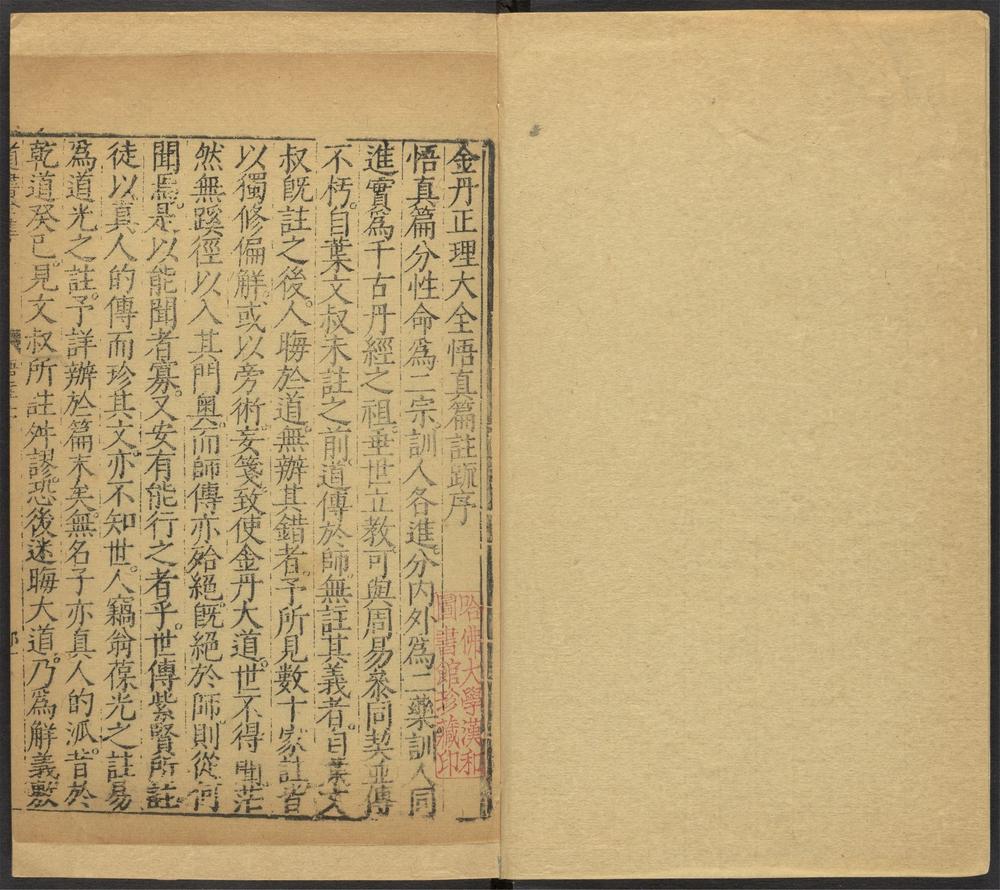 金丹正理大全悟真篇註疏序
悟真篇分性命爲二宗訓人各進分內外爲二藥訓人同
進實爲千古丹經之祖垂世立教可與周易叅同契並傳
不朽自葉文叔未註之前道傳於師無註其義者自葉文
叔旣註之後人晦於道無辦其錯者予所見數十家註皆
以獨修偏解或以旁術妄箋致使金丹大道世不得聞茫
然無蹊徑以入其門奥而師傳亦殆絕旣絕於師則從何
聞焉是以能聞者寡又安有能行之者乎世傳紫賢所註
徒以真人的傳而珍其文亦不知世人竊翁葆光之註易
爲道光之註予詳辦於篇末矣無名子亦真人的派昔於
乾道癸巳見文叔所註舛謬恐後迷晦大道乃爲解義敷
哈佛大學漢和
圖書館珍藏印